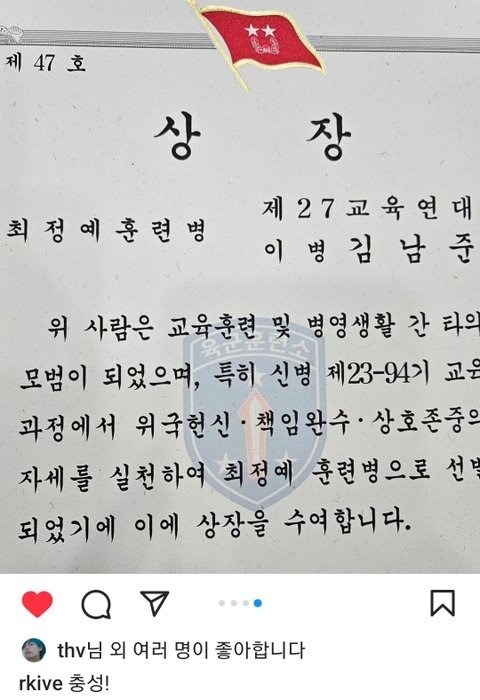 제 47 호
상 장
제27교육연대
최정예훈련병
이병 김남준
위 사람은 교육훈련 및 병영생활 간 타의
모범이 되었으며, 특히 신병 제23-94기 교육
과정에서 위국헌신·책임완수·상호존중의
자세를 실천하여 최정예 훈련병으로 선발
되었기에 이에 상장을 수여합니다.
육군훈련소
thv님 외 여러 명이 좋아합니다
rkive 충성!